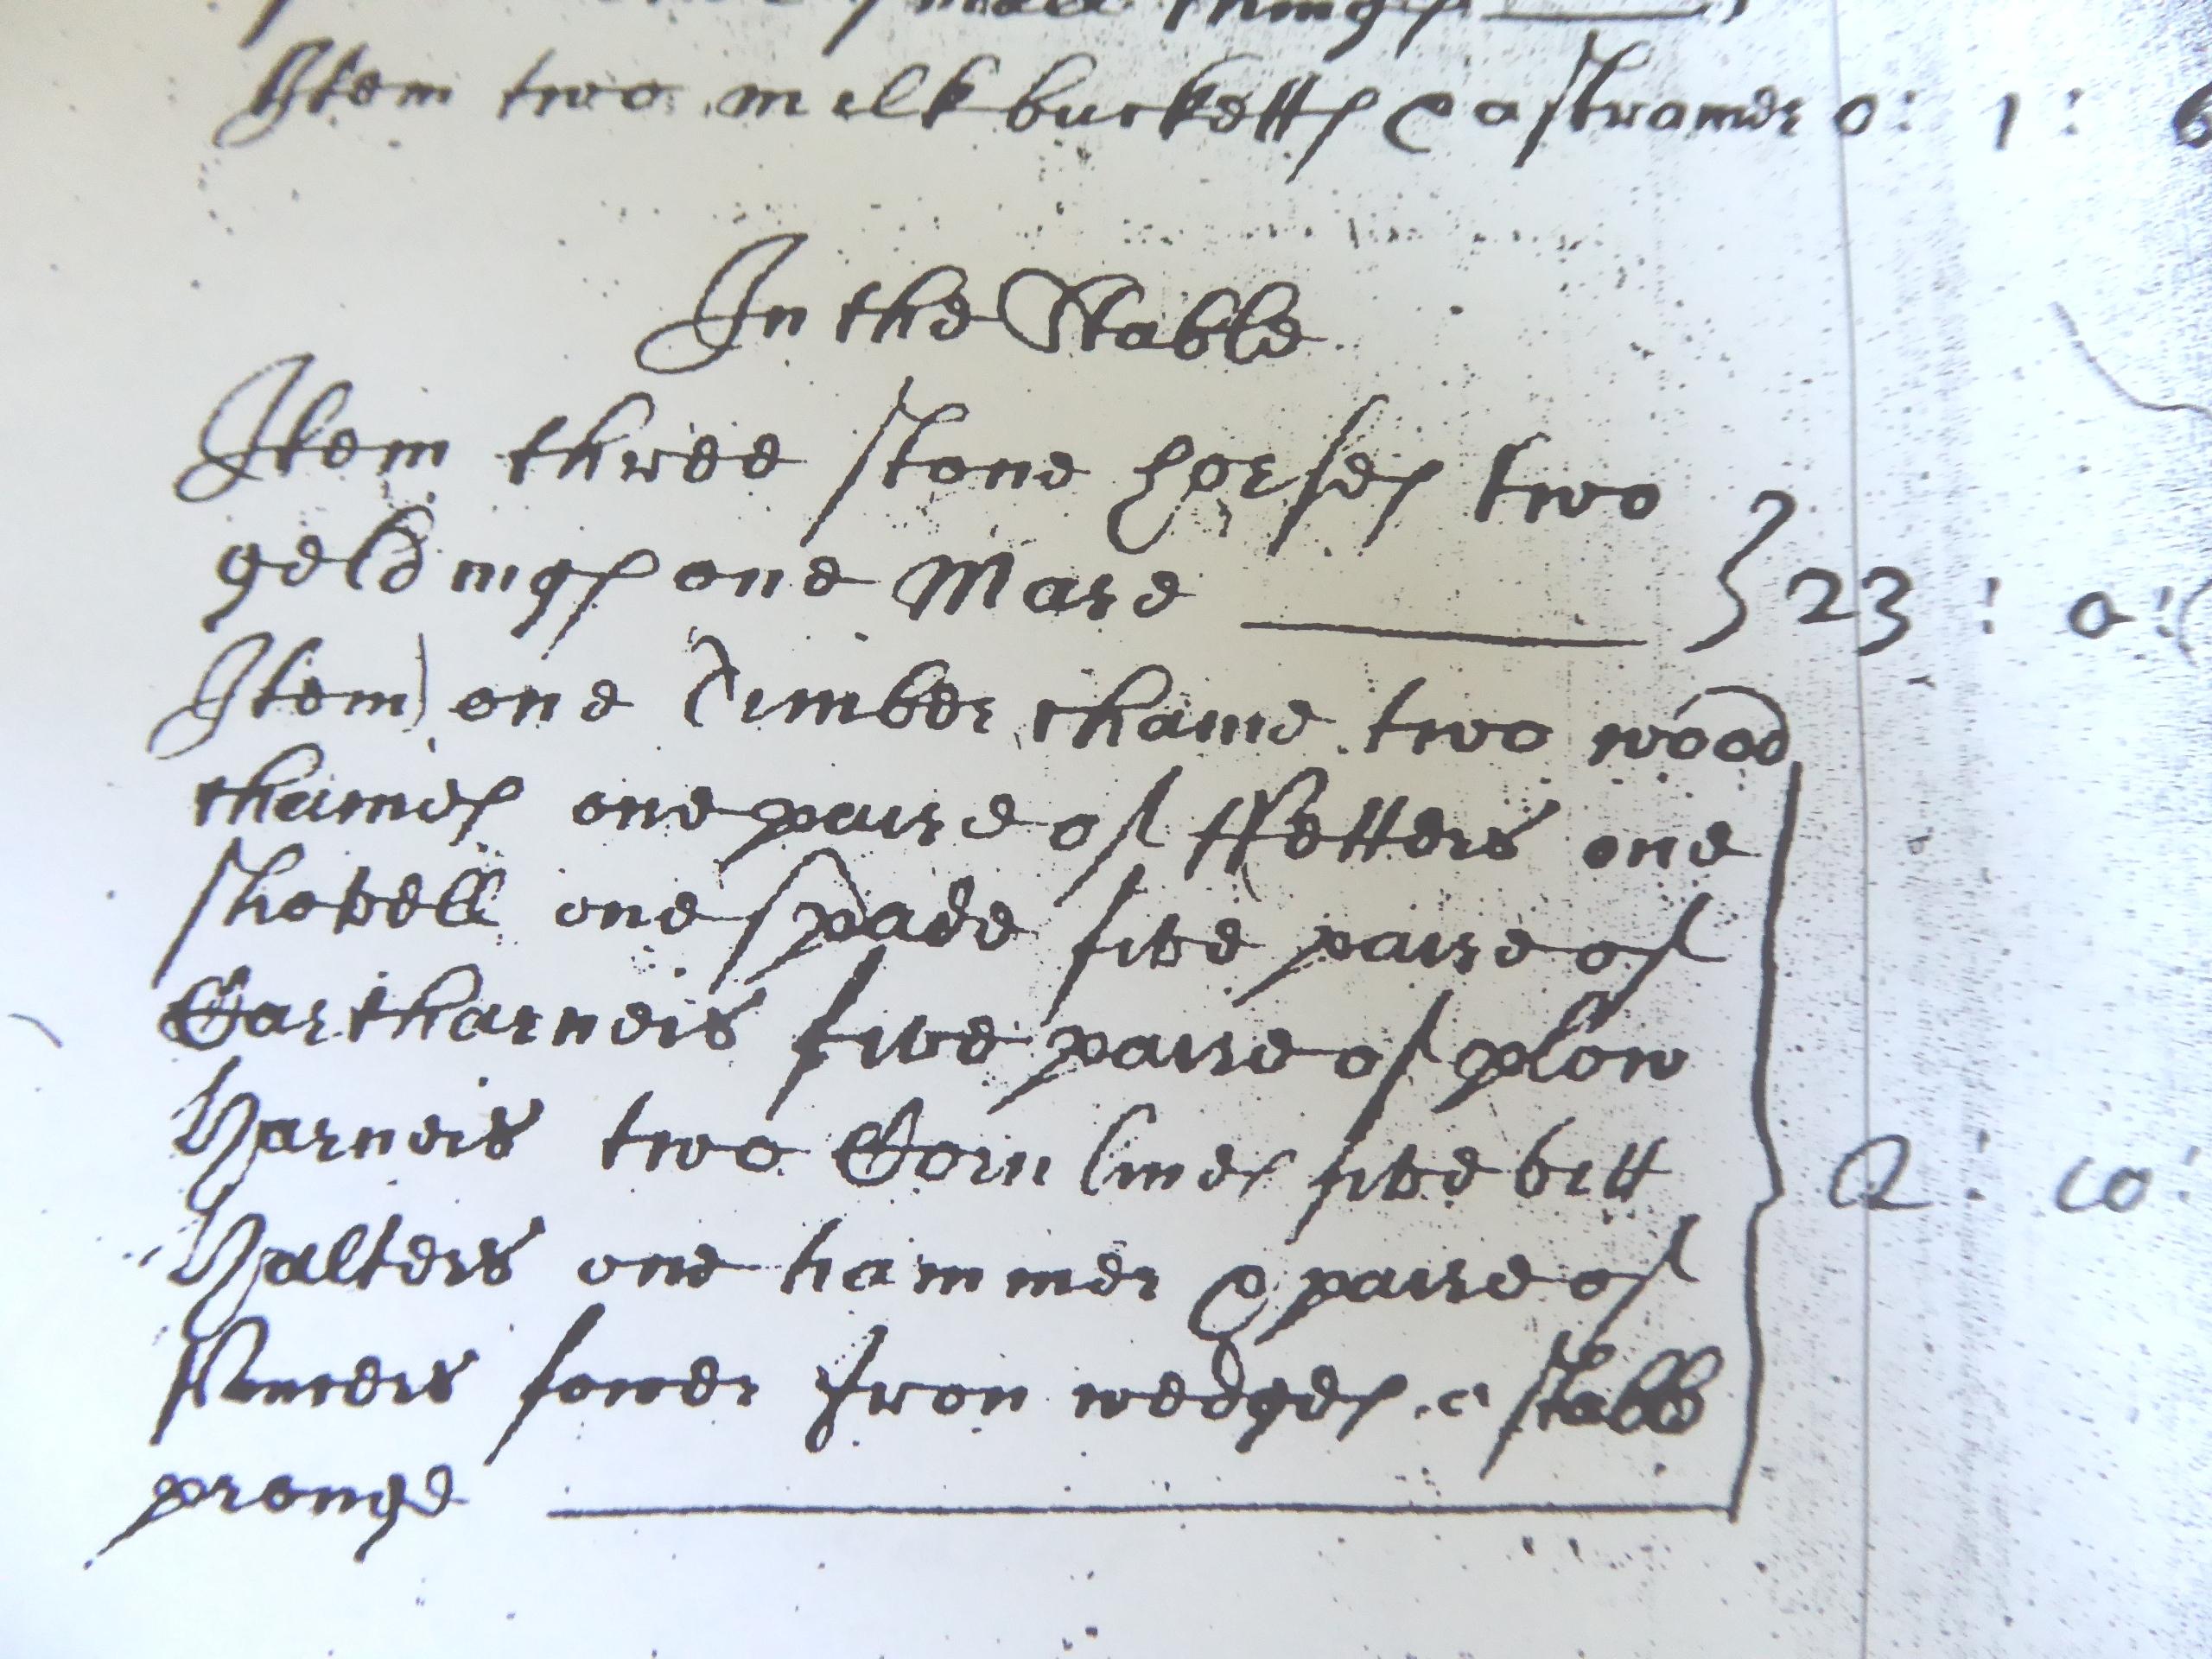 small things
Item two milk bucketts & a strainer 0: 1: 6
In the Stable
Item three stone horses two
geldings one Mare } 23 : 0 :
Item one Timber chaine two wood
chaines one paire of ffetters one
shovell one spade five paire of
Cartharneis five paire of plow
Harneis two Corn lines five bitt
Halters one hammer & paire of
Pincers fower Iron wedges a stabb
pronge 2 : 10 :